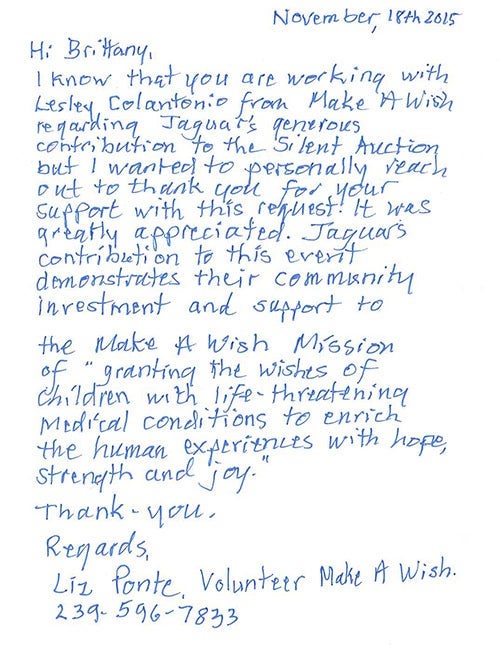 November, 18th 2015
Hi Brittany,
I know that you are working with
Lesley Colantonio from Make A Wish
regarding Jaguar's generous
contribution to the Silent Auction
but I wanted to personally reach
out to thank you for your
support with this request! It was
greatly appreciated. Jaguar's
contribution to this event
demonstrates their community
investment and support to
the Make A Wish Mission
of "granting the wishes of
children with life-threatening
Medical conditions to enrich
the human experiences with hope,
strength and joy."
Thank-you.
Regards,
Liz Ponte, Volunteer Make A Wish.
239-596-7833